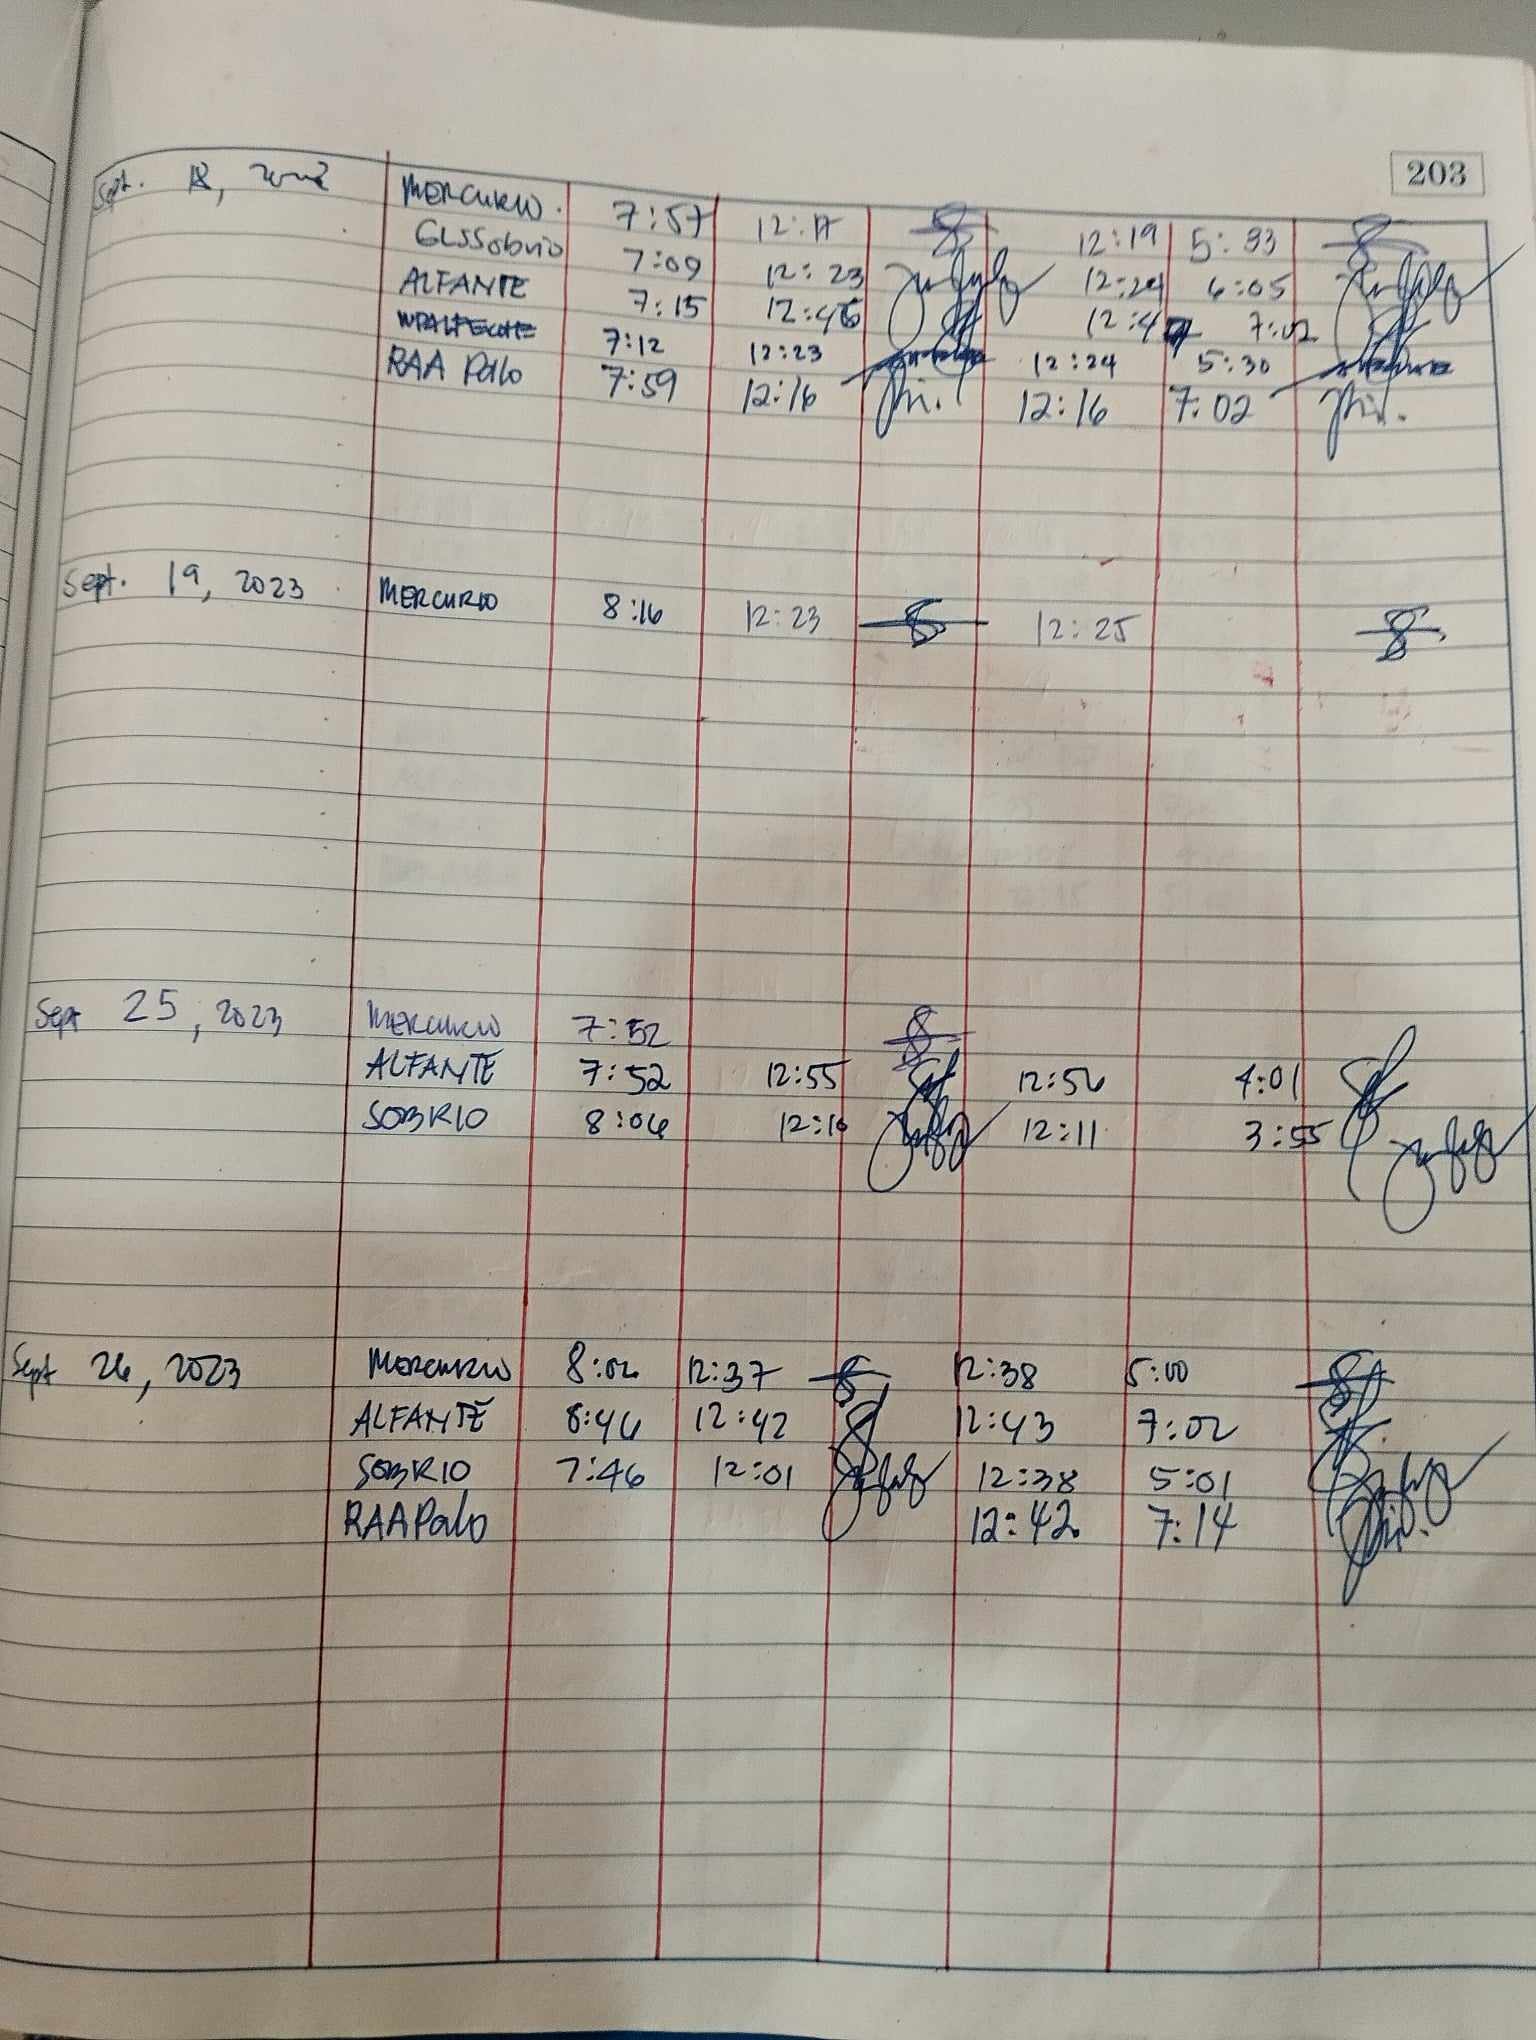 203
Sept. 18, 2023 MERCURIO. 7:57 12:17 12:19 5:33
GLSSobrio 7:09 12:23 12:24 6:05
ALFANTE 7:15 12:46 12:4 7:02
7:12 12:23 12:24 5:30
RAA Palo 7:59 12:16 12:16 7:02
Sept. 19, 2023 MERCURIO 8:16 12:23 12:25
Sept 25, 2023 MERCURIO 7:52
ALFANTE 7:52 12:55 12:56 4:01
SOBRIO 8:06 12:10 12:11 3:55
Sept 26, 2023 MERCURIO 8:02 12:37 12:38 5:00
ALFANTE 8:46 12:42 12:43 7:02
SOBRIO 7:46 12:01 12:38 5:01
RAAPalo 12:42 7:14